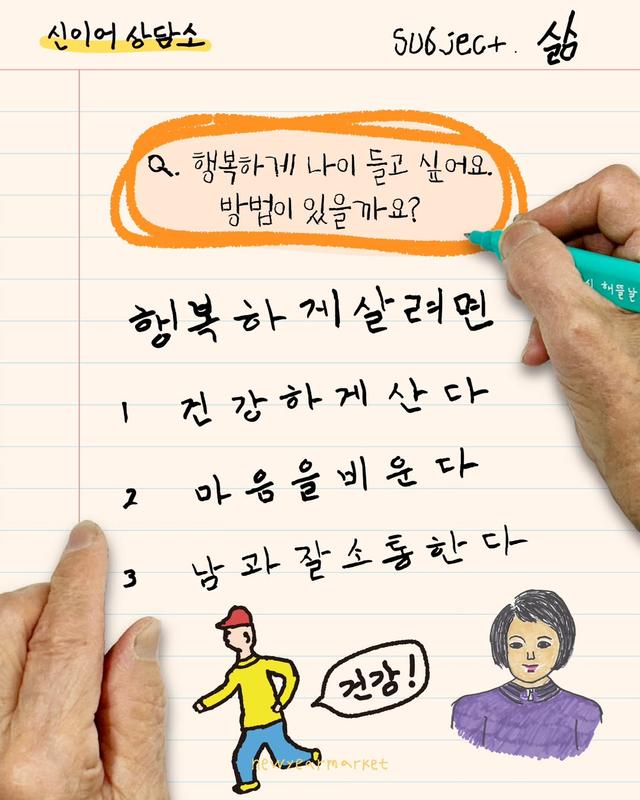 신이어 상담소
subject. 삶
Q. 행복하게 나이 들고 싶어요.
방법이 있을까요?
행복하게살려면
1 건강하게산다
2 마음을비운다
3 남과잘소통한다
건강!
newyearmarket
해뜰날